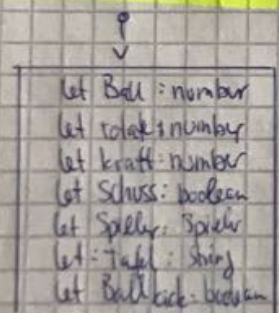 let Ball : number
let : number
let kraft : number
let Schuss : boolean
let Spieler : Spieler
let : Tafel : string
let Ball kick : boolean